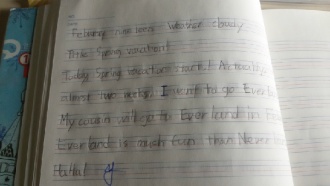 February nineteen Weather cloudy
Title Spring vacation!
Today Spring vacation starts! Actually
almost two weeks. I want to go Ever
My cousin will go to Everland in
Everland is much fun than Never
Haha!